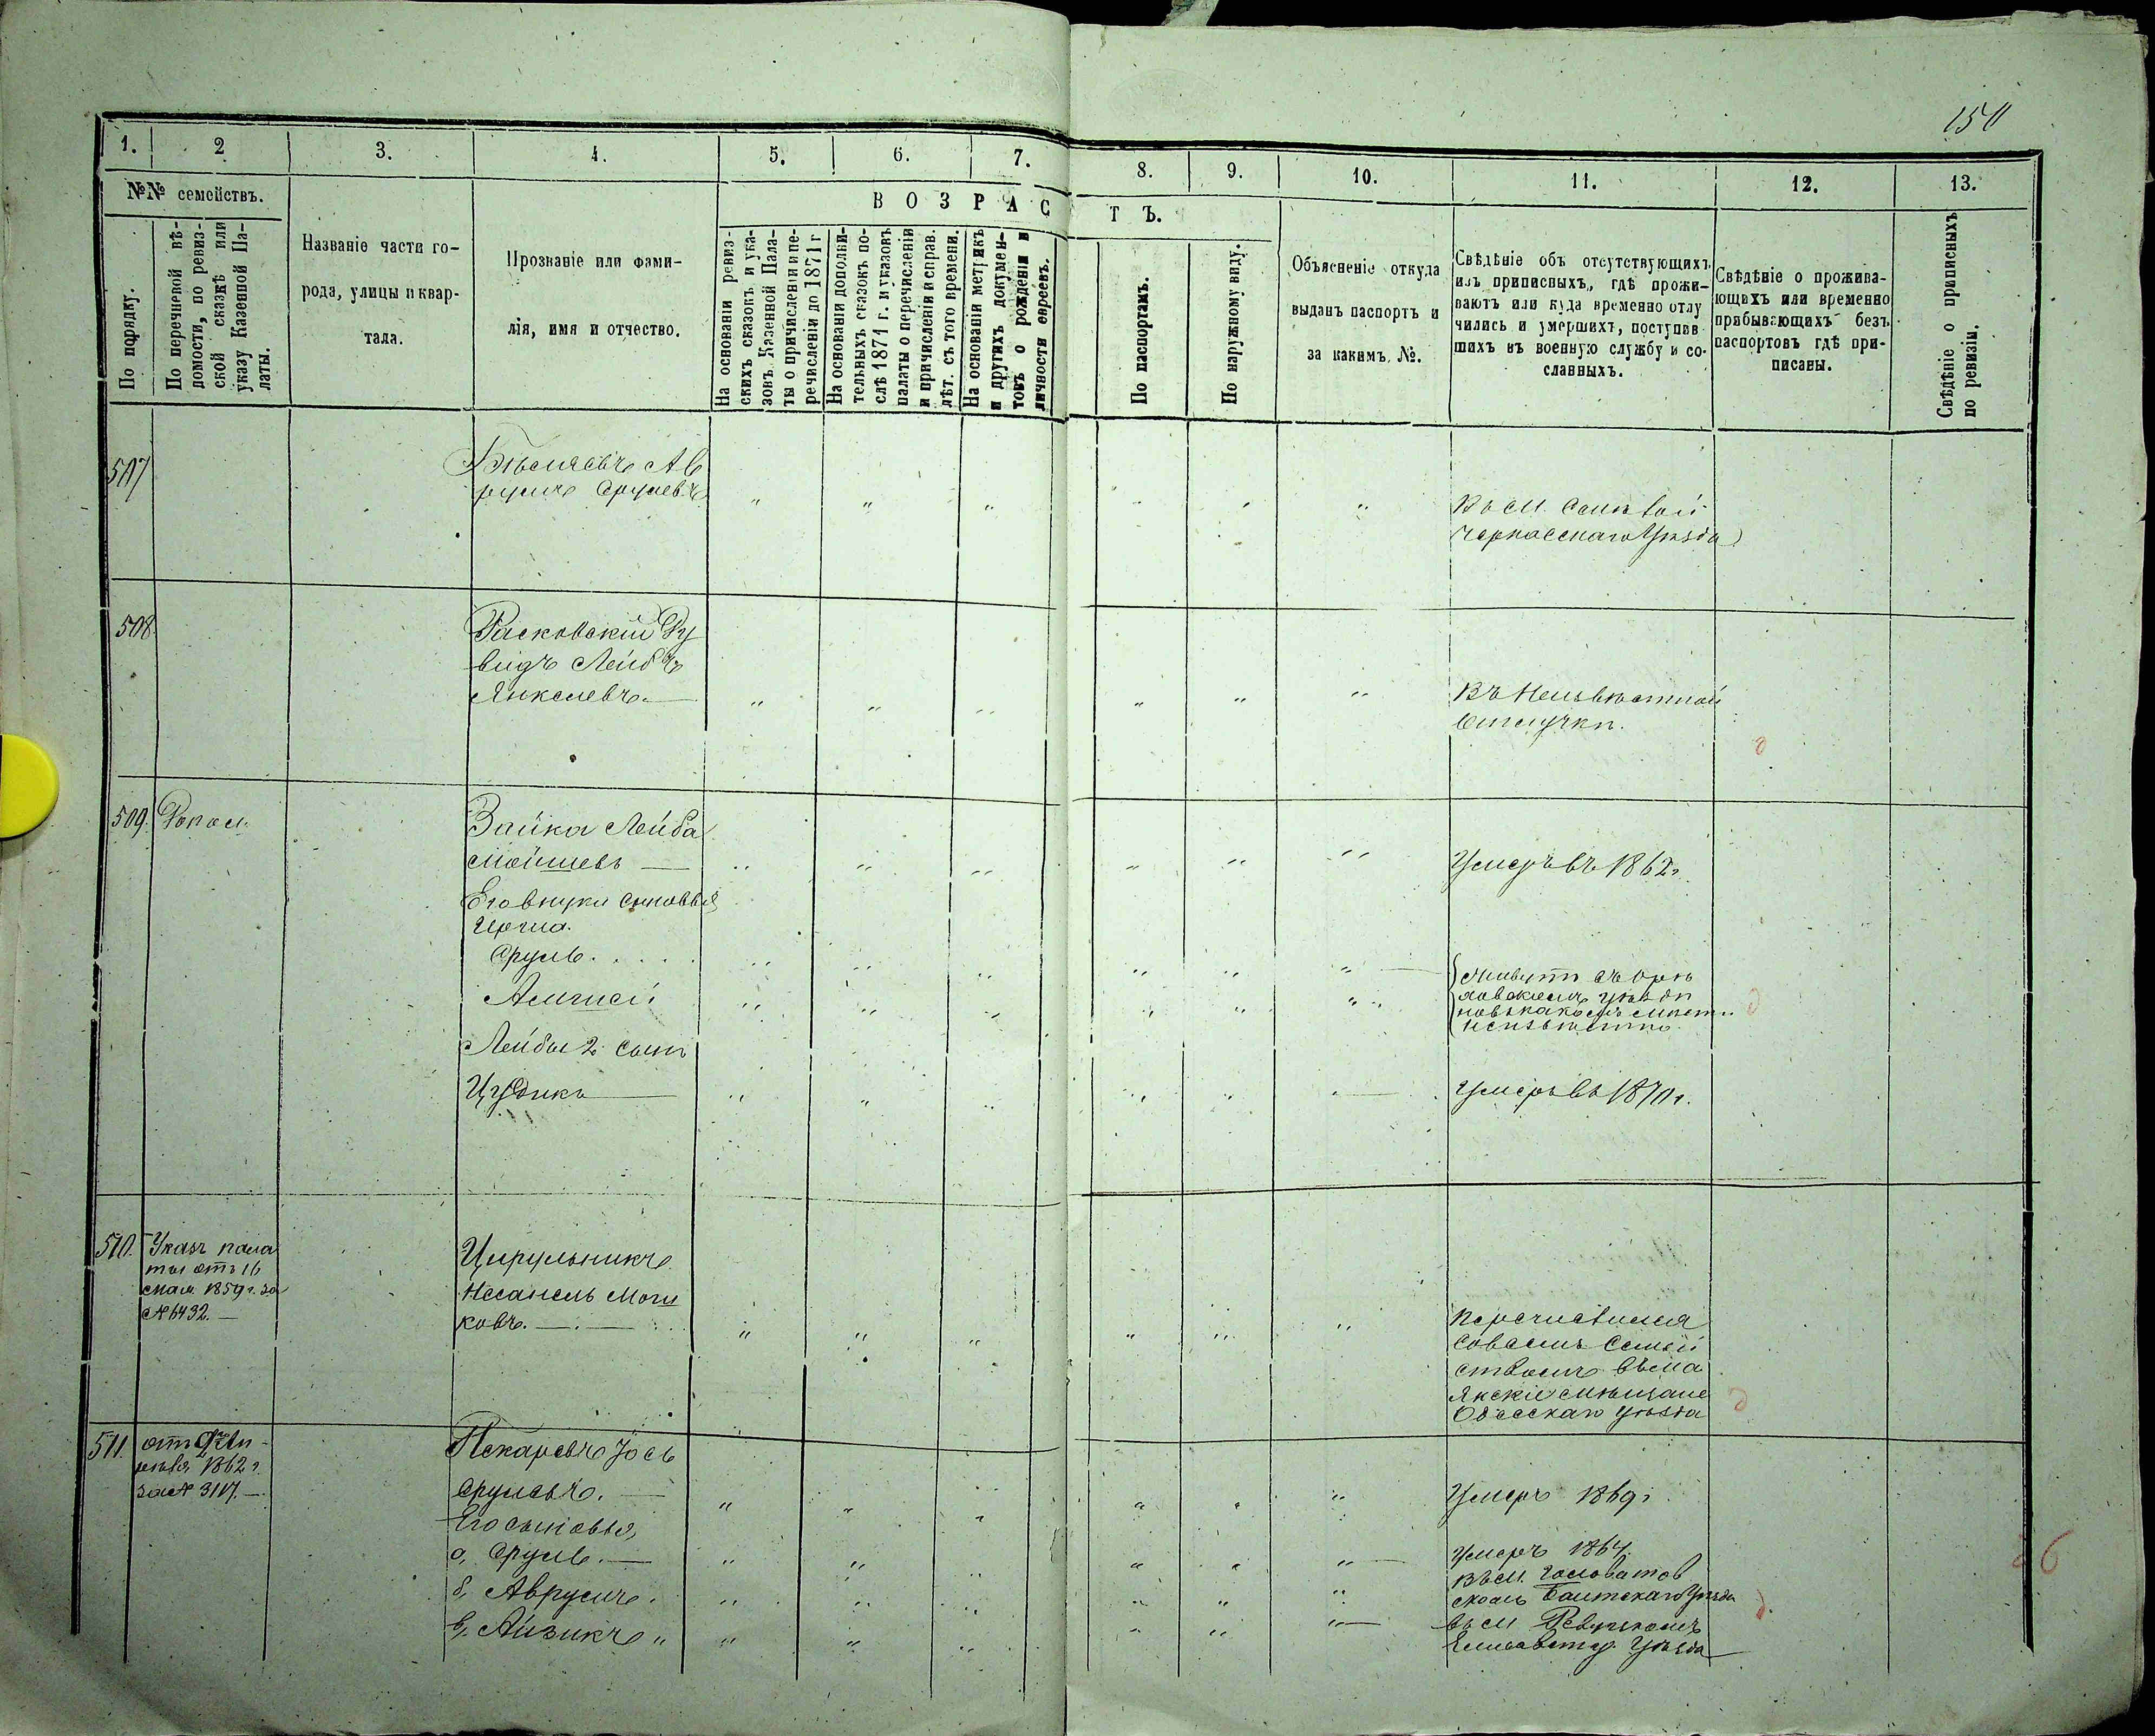 150
1. 2 3. 4. 5. 6. 7. 8. 9. 10. 11. 12. 13.
№№ семействъ.
По порядку.
По перечневой вѣ-
домости, по ревиз-
ской сказкѣ или
указу Казенной Па-
латы.
Названіе части го-
рода, улицы и квар-
тала.
Прозваніе или фами-
лія, имя и отчество.
ВОЗРАСТЪ.
На основаніи ревиз-
скихъ сказокъ и ука-
зовъ Казенной Пала-
ты о причисленіи и пе-
речисленіи до 1871 г
На основаніи дополни-
тельныхъ сказокъ по-
слѣ 1871 г. и указовъ
палаты о перечисленіи
и причисленіи и справ.
лѣт. съ того времени.
На основаніи метрикъ
и другихъ докумен-
товъ о рожденіи и
личности евреевъ.
По паспортамъ.
По наружному виду.
Объясненіе откуда
выданъ паспортъ и
за какимъ №.
Свѣдѣніе объ отсутствующихъ
изъ приписныхъ, гдѣ прожи-
ваютъ или куда временно отлу
чились и умершихъ, поступив
шихъ въ военную службу и со-
сланныхъ.
Свѣдѣніе о прожива-
ющихъ или временно
прибывающихъ безъ
паспортовъ гдѣ при-
писаны.
Свѣдѣніе о приписныхъ
по ревизіи.
507
Ав
румъ Срулевъ
Въ м.
Черкасскаго Уѣзда
508
Расковскій Ду
видъ Лейбъ
Янкелевъ.
Въ Неизвѣстной
Отлучкѣ.
509. Допол.
Зайка Лейба
Мойшевъ
Умеръ въ 1862 г.
Его внуки сыновья
Герша.
Сруль
Живутъ въ
уѣздѣ
но въ какомъ мѣстѣ
неизвѣстно.
Лейбы 2 сынъ
Цудикъ
Умеръ въ 1870 г.
510. Указъ пала
ты отъ 16
мая 1859 г. за
№ 6432.
Цирульникъ
Мош
ковъ.
Перечисвшися
Со всемъ Семей
ствомъ въ Ма
якскіе мѣщане
Одесскаго уѣзда
511. отъ
1862 г.
за №
Пекаревъ Іось
Срулевъ.
Умеръ 1869 г
Его сыновья,
а, Сруль.
Умеръ 1864.
б, Аврумъ.
Въ м. Головатов
скомъ Балтскаго Уѣзда
в, Айзикъ
въ м
Елисаветгр. Уѣзда
6